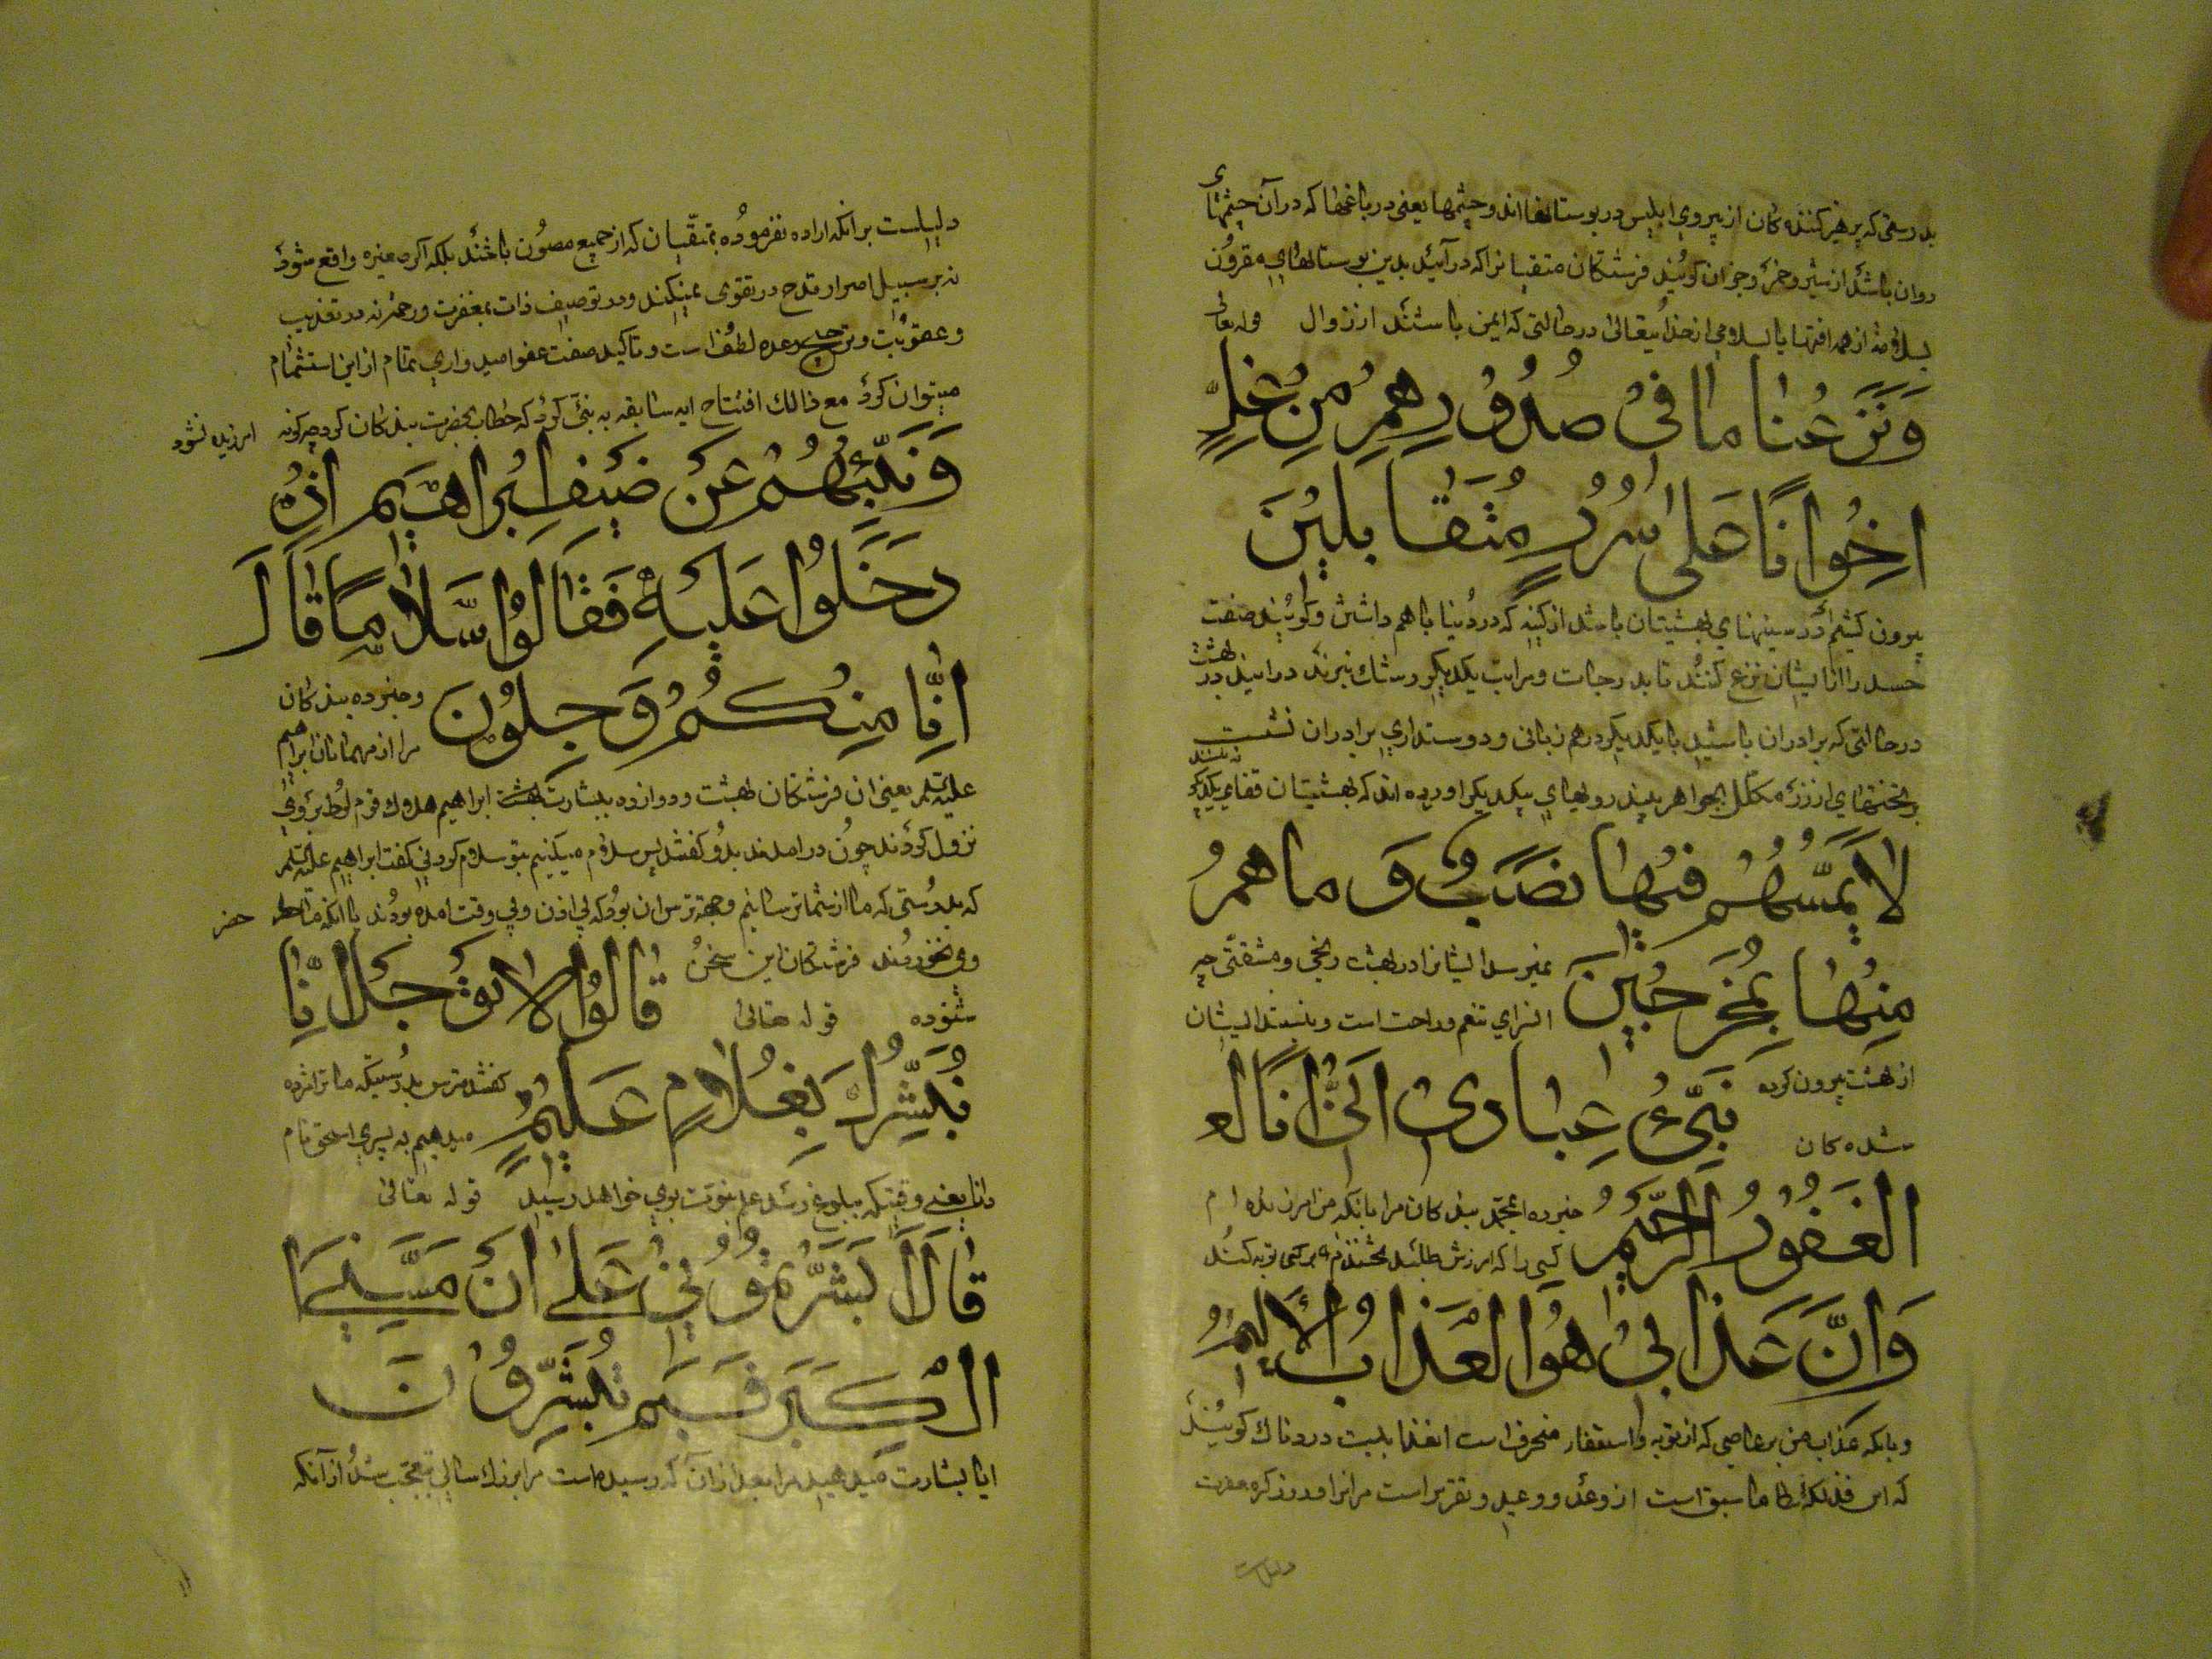 بدرستی که پرهیز کننده کان از پیروی ابلیس در بوستانها اند و چشمها یعنی در باغها که در آن چشمهای
روان باشد از شیر و خمر و جز ان گویند فرشتکان متقیانرا که در آئید بدین بوستانهای مقرون
بسلامت از همه افتها یا بسلامی از خدایتعالی در حالتی که ایمن باشند از زوال قوله تعالی
وَنَزَعْنَا مَا فِیْ صُدُوْرِهِمْ مِنْ غِلٍّ
اِخْوَانًا عَلٰی سُرُرٍ مُتَقَابِلِیْنَ
بیرون کشیم آنچه در سینهای بهشتیان باشد از کینه که در دنیا با هم داشتن و گویند صفت
حسد را از ایشان نزع کنند تا بدرجات ومراتب یکدیکر رشک نبرند در امیند در بهشت
در حالتی که برادران باشند با یکدیکر در هم زبانی و دوستداری برادران نشسته
بر تختهای از زر مکلل بجواهر بینند رویهای یکدیکر اورده اند که بهشتیان قفای یکدیکر نه بینند
لَا یَمَسُّهُمْ فِیْهَا نَصَبٌ وَمَا هُمْ
مِنْهَا بِمُخْرَجِیْنَ نمیرسد ایشانرا در بهشت رنجی و مشقتی چه
انسرای تنعم وراحت است و نیستند ایشان
از بهشت بیرون کرده شده کان نَبِّیْٔ عِبَادِیْ اَنِّیْ اَنَا الْ
الغَفُوْرُ الرَّحِیْمُ خبر ده ای محمد بنده کان مرا بانکه من امرزنده ام
کسی را که امرزش طلبد بخشنده ام بر کسی توبه کند
وَاَنَّ عَذَابِیْ هُوَ الْعَذَابُ الْاَلِیْمُ
و بانکه عذاب من بر عاصی که از توبه و استغفار منحرف است انعذابیست دردناک گویند
که این فذلکه ما سبق است از وعد و وعید و تقریر است مر انرا و در ذکر مغفرت
دلیلست
دلیلست بر انکه اراده نفرموده بمتقیان که از جمیع مصون باشند بلکه اکر صغیره واقع شود
نه بر سبیل اصرار قدح در تقوی نمیکند و در توصیف ذات بمغفرت و رحمت نه در تعذیب
و عقوبت و ترجیح وعده لطف است و تاکید صفت عفو امیدواری تمام از این استشمام
میتوان کرد مع ذالک افتتاح ایه سابقه به نبّئ کرد که خطاب بحضرت بندکان کرد چکونه امرزیده نشود
وَنَبِّئْهُمْ عَنْ ضَیْفِ اِبْرَاهِیْمَ اِذْ
دَخَلُوْا عَلَیْهِ فَقَالُوْا سَلَامًا قَالَ
اِنَّا مِنْکُمْ وَجِلُوْنَ و خبر ده بندکان
مرا از مهمانان ابراهیم
علیه السلم یعنی ان فرشتکان که بجهت ابراهیم هلاک قوم لوط بروی
نزول کردند چون در امدند بدو کفتند پس سلام میکنیم بتو سلام کردنی کفت ابراهیم علیه السلم
که بدرستی که ما از شما ترسانیم و جهة ترس ان بود که بی اذن و بی وقت امده بودند یا انکه
نخوردند فرشتکان این سخن قَالُوْا لَا تَوْجَلْ اِنَّا
شنوده قوله تعالی
نُبَشِّرُکَ بِغُلَامٍ عَلِیْمٍ کفتند مترس بدرستیکه ما ترا مژده
میدهیم به پسری اسحق نام
دانا یعنی وقتیکه ببلوغ رسد علم نبوت بوی خواهد رسید قوله تعالی
قَالَ اَبَشَّرْتُمُوْنِیْ عَلٰی اَنْ مَسَّنِیَ
الْکِبَرُ فَبِمَ تُبَشِّرُوْنَ
ایا بشارت میدهید مرا بعد از آن که رسیده است مرا بزرک سالی تعجب شد از آنکه